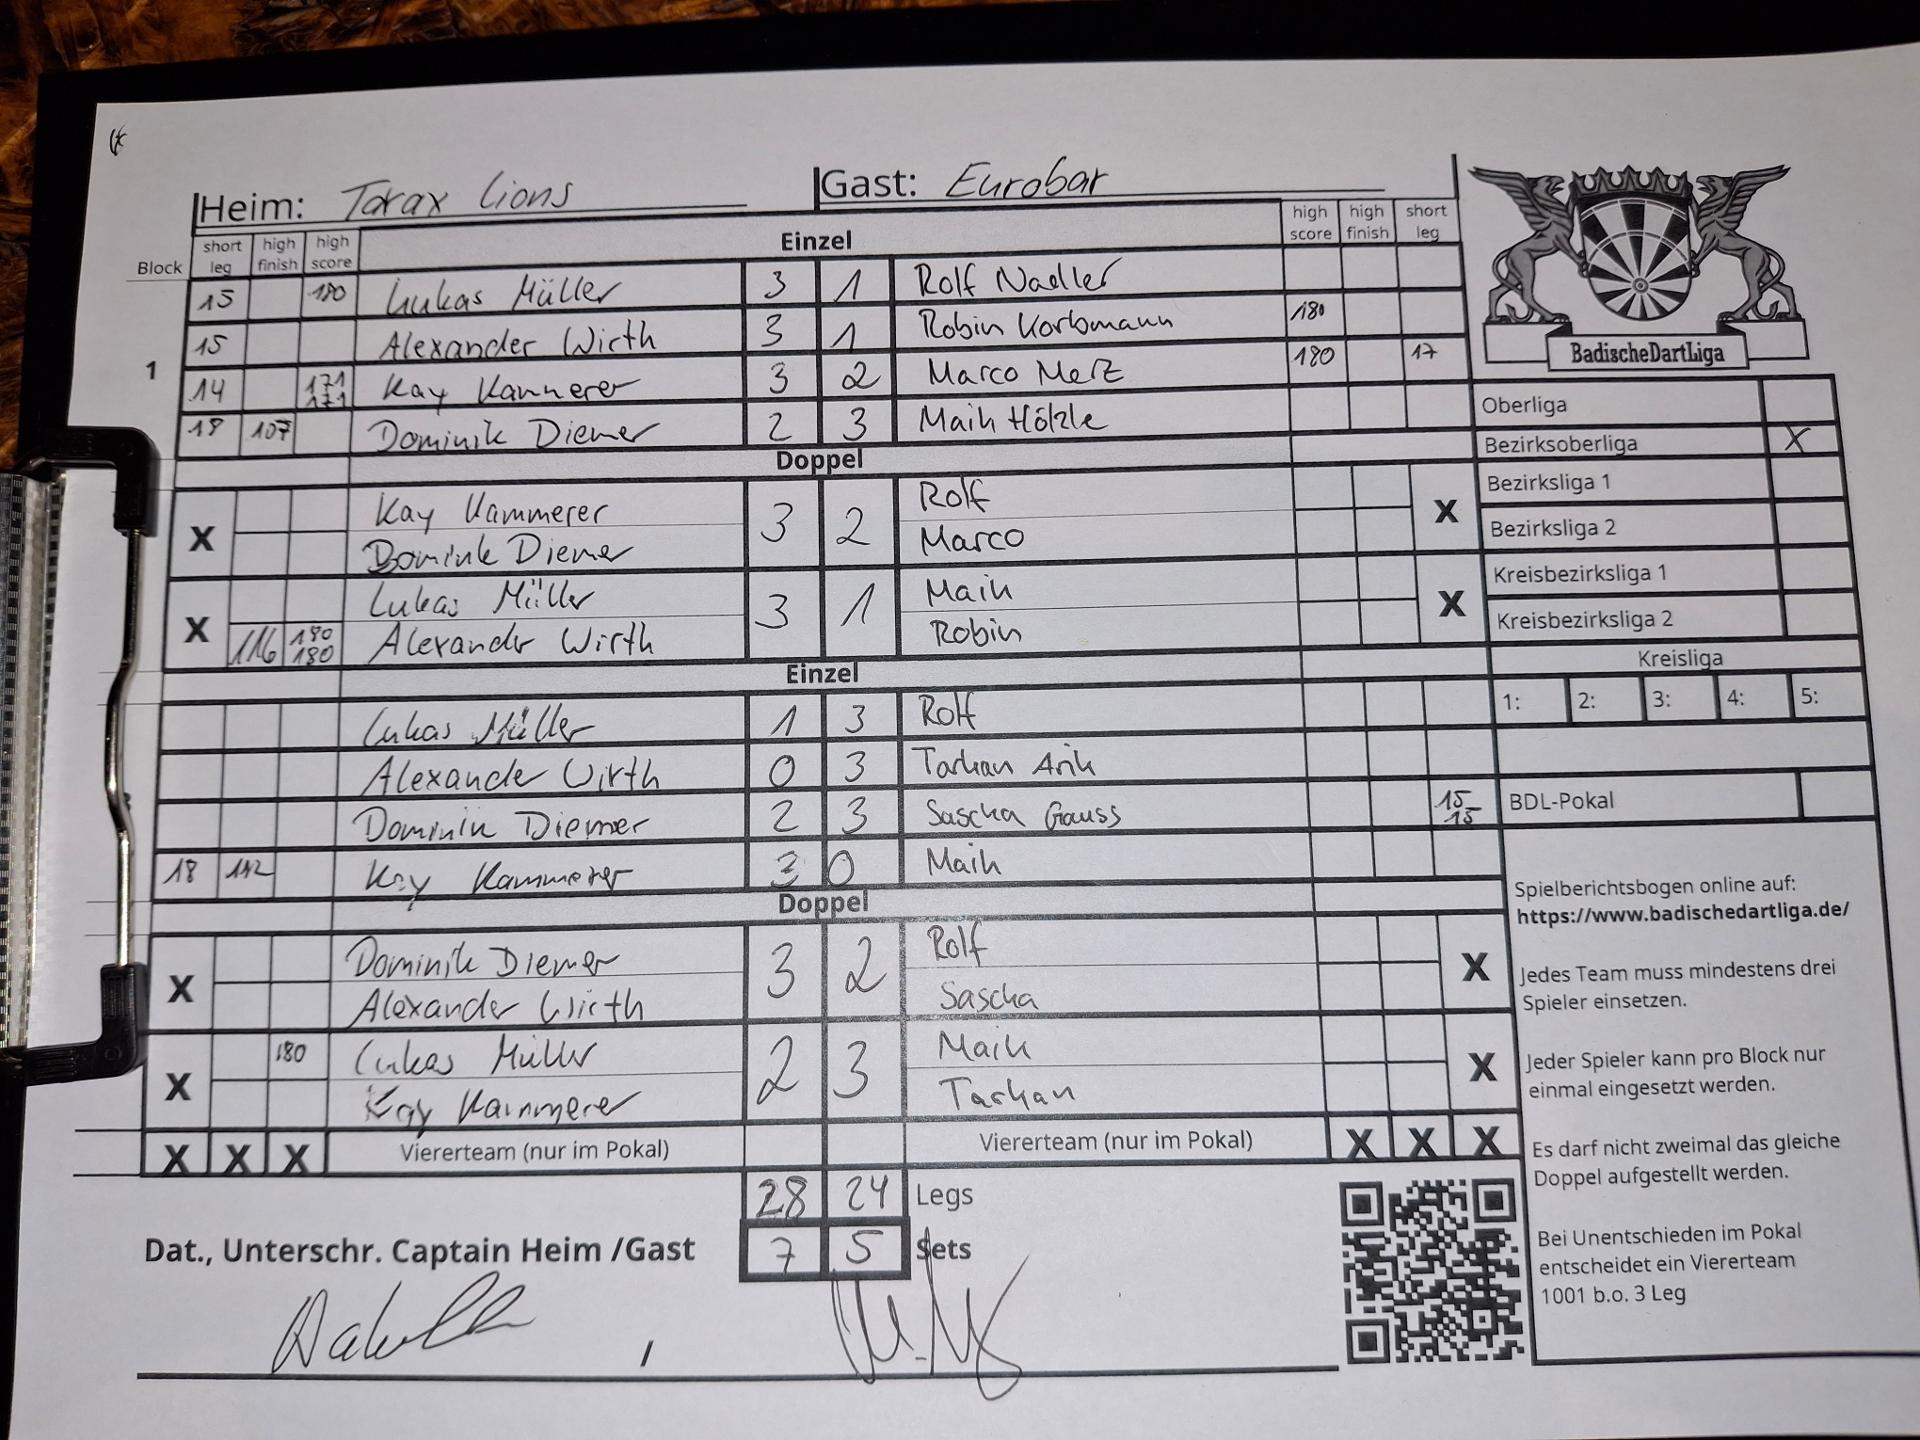 Heim: Torax Lions Gast: Eurobar
Block short leg high finish high score Einzel high score high finish short leg
15 180 Lukas Müller 3 1 Rolf Nadler
15 Alexander Wirth 3 1 Robin Korbmann 180
1
14 171 171 Kay Kammerer 3 2 Marco Merz 180 17
18 107 Dominik Diemer 2 3 Maik Hölzle
Doppel
X Kay Kammerer 3 2 Rolf X
Dominik Diemer Marco
X Lukas Müller 3 1 Maik X
116 180 180 Alexander Wirth Robin
Einzel
Lukas Müller 1 3 Rolf
Alexander Wirth 0 3 Tarkan Arik
Dominik Diemer 2 3 Sascha Gauss 15 15
18 112 Kay Kammerer 3 0 Maik
Doppel
X Dominik Diemer 3 2 Rolf X
Alexander Wirth Sascha
X 180 Lukas Müller 2 3 Maik X
Kay Kammerer Tarkan
X X X Vierterteam (nur im Pokal) Viererteam (nur im Pokal) X X X
28 24 Legs
7 5 Sets
Dat., Unterschr. Captain Heim /Gast
/
BadischeDartLiga
Oberliga
Bezirksoberliga X
Bezirksliga 1
Bezirksliga 2
Kreisbezirksliga 1
Kreisbezirksliga 2
Kreisliga
1: 2: 3: 4: 5:
BDL-Pokal
Spielberichtsbogen online auf:
https://www.badischedartliga.de/
Jedes Team muss mindestens drei
Spieler einsetzen.
Jeder Spieler kann pro Block nur
einmal eingesetzt werden.
Es darf nicht zweimal das gleiche
Doppel aufgestellt werden.
Bei Unentschieden im Pokal
entscheidet ein Viererteam
1001 b.o. 3 Leg